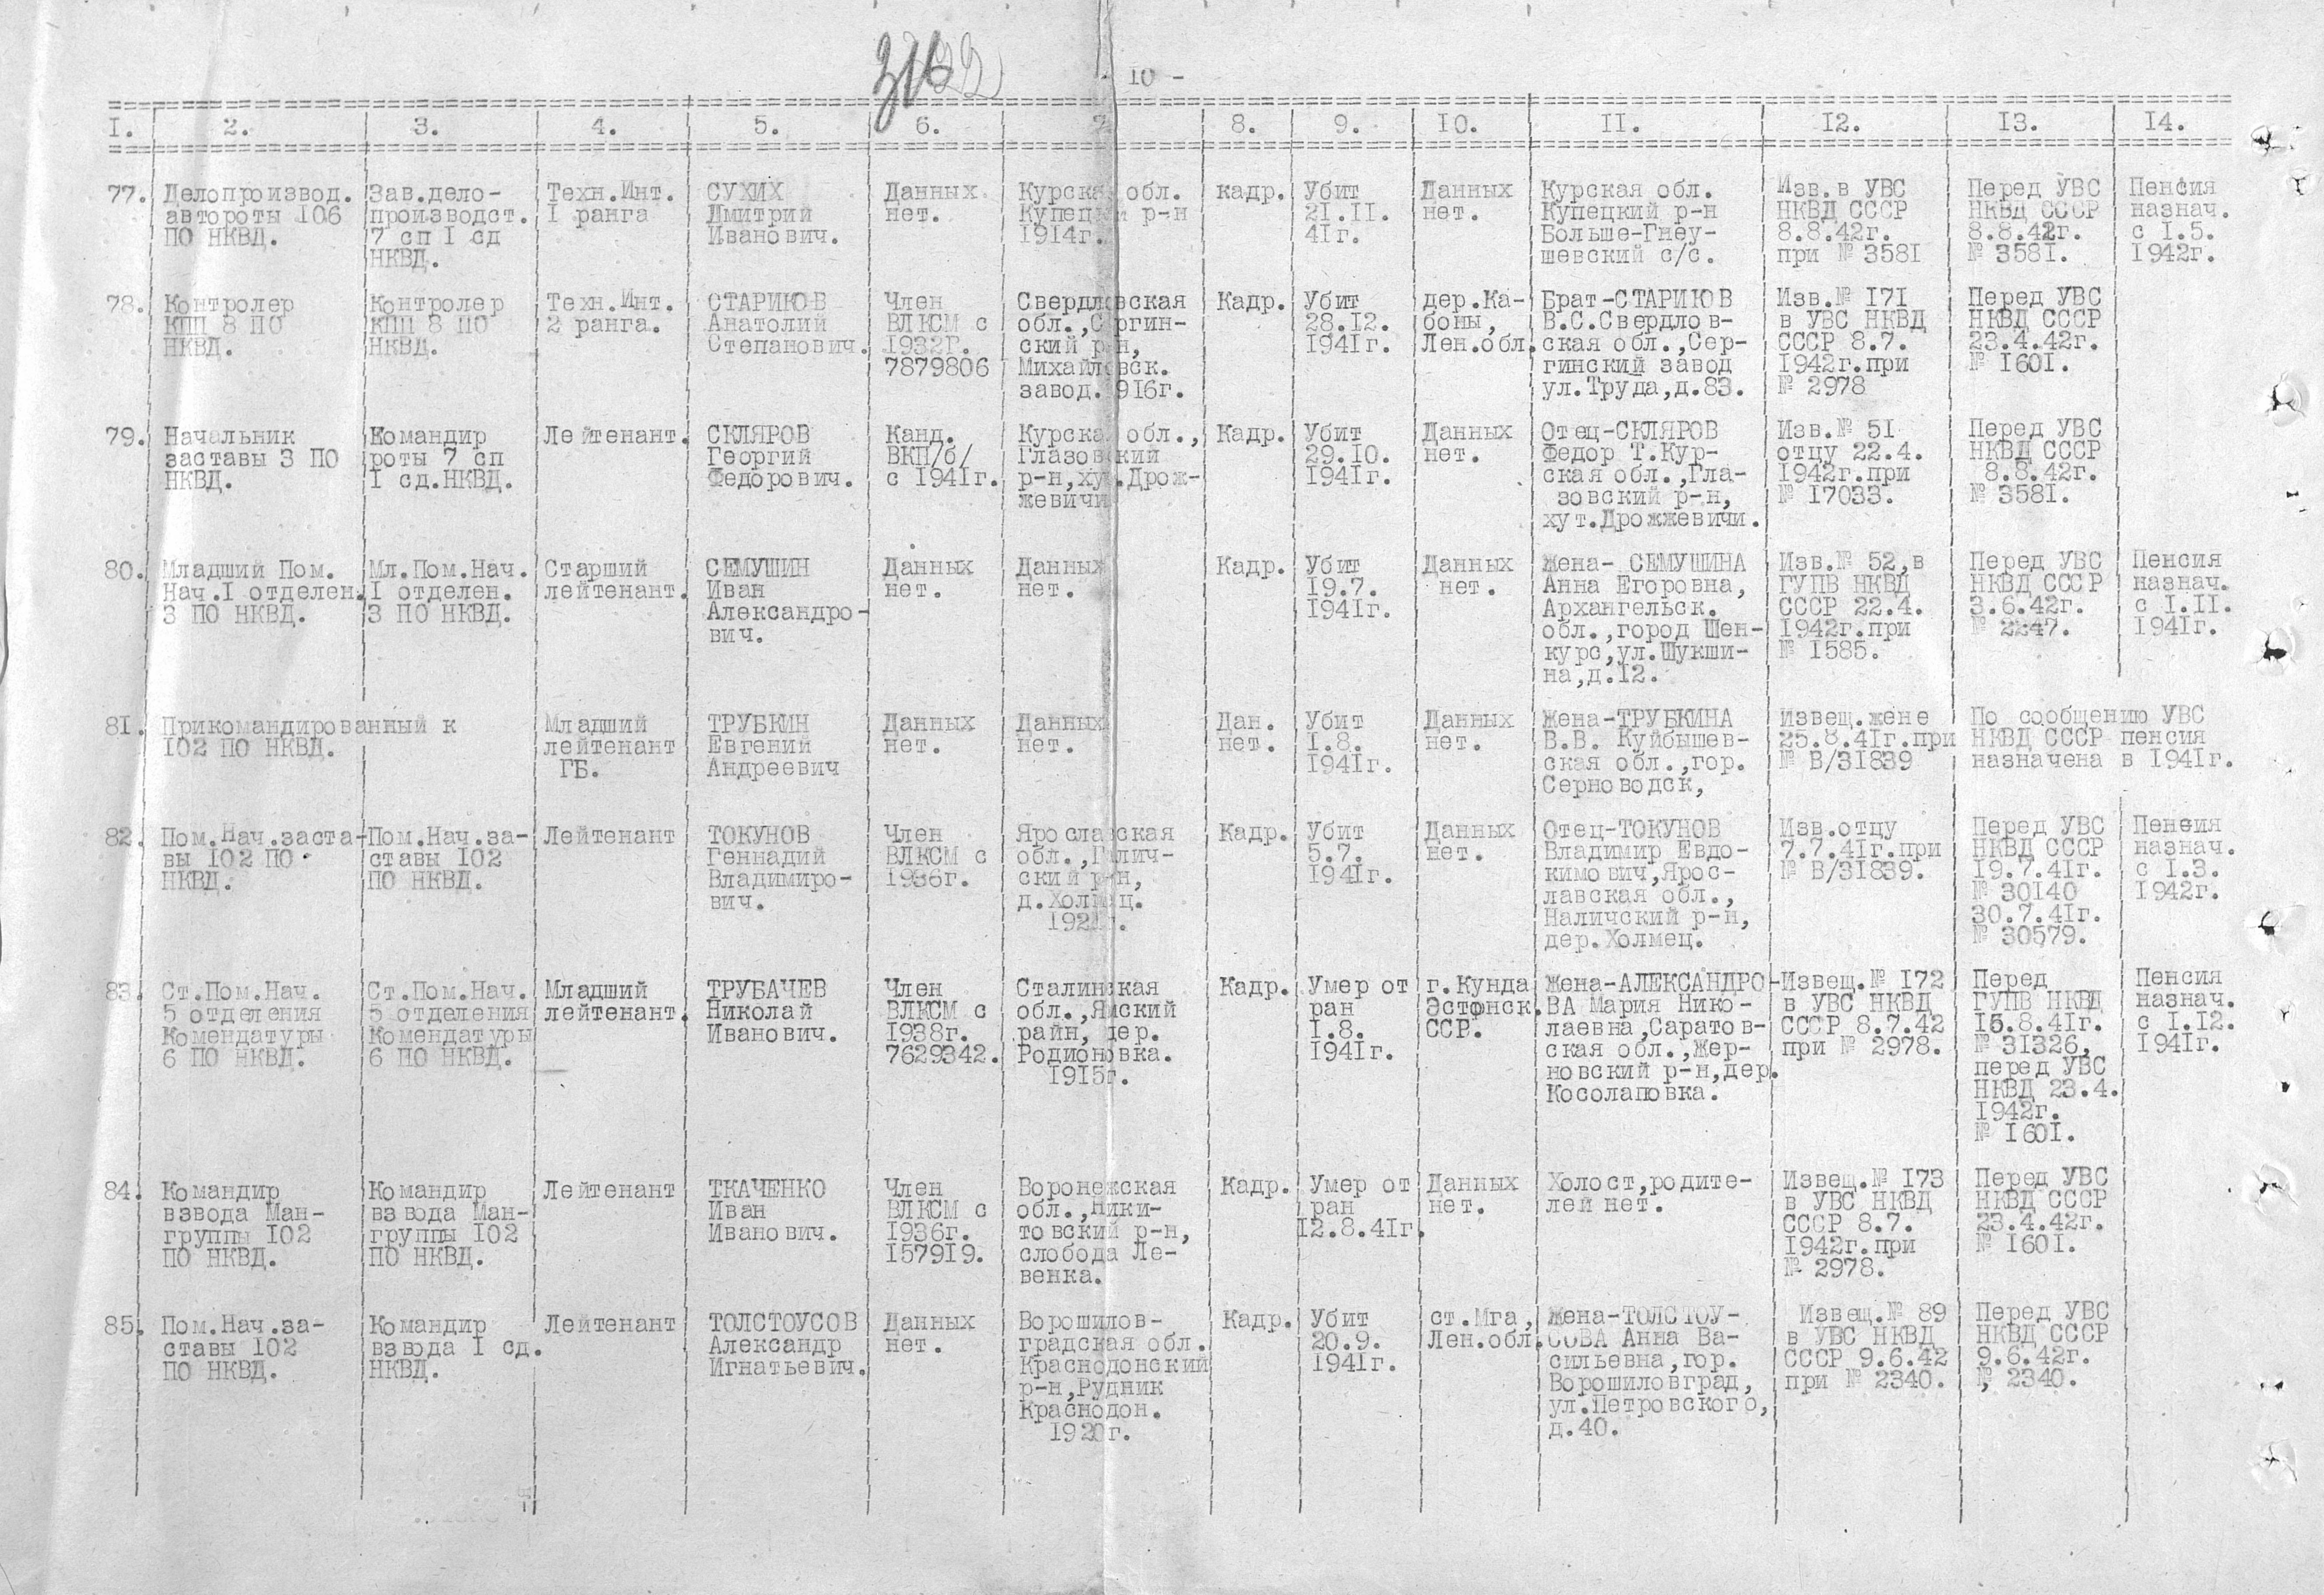 10 -
I. 2. 3. 4. 5. 6. 7. 8. 9. 10. II. I2. I3. I4.
77. Делопроизвод.
автороты 106
ПО НКВД.
Зав.дело-
производст.
7 сп I сд
НКВД.
Техн.Инт.
I ранга
СУХИХ
Дмитрий
Иванович.
Данных
нет.
Курская обл.
Купецкий р-н
1914г.
кадр.
Убит
21.II.
41г.
Данных
нет.
Курская обл.
Купецкий р-н
Больше-Гнеу-
шевский с/с.
Изв.в УВС
НКВД СССР
8.8.42г.
при № 3581
Перед УВС
НКВД СССР
8.8.42г.
№ 3581.
Пенсия
назнач.
с I.5.
1942г.
78. Контролер
КПП 8 ПО
НКВД.
Контролер
КПП 8 ПО
НКВД.
Техн.Инт.
2 ранга.
СТАРИКОВ
Анатолий
Степанович.
Член
ВЛКСМ с
1932г.
7879806
Свердловская
обл.,Сергин-
ский р-н,
Михайловск.
завод.1916г.
Кадр.
Убит
28.12.
1941г.
дер.Ка-
боны,
Лен.обл.
Брат-СТАРИКОВ
В.С.Свердлов-
ская обл.,Сер-
гинский завод
ул.Труда,д.83.
Изв.№ 171
в УВС НКВД
СССР 8.7.
1942г.при
№ 2978
Перед УВС
НКВД СССР
23.4.42г.
№ 1601.
79. Начальник
заставы 3 ПО
НКВД.
Командир
роты 7 сп
I сд.НКВД.
Лейтенант.
СКЛЯРОВ
Георгий
Федорович.
Канд.
ВКП/б/
с 1941г.
Курская обл.,
Глазовский
р-н,хут.Дрож-
жевичи
Кадр.
Убит
29.10.
1941г.
Данных
нет.
Отец-СКЛЯРОВ
Федор Т.Кур-
ская обл.,Гла-
зовский р-н,
хут.Дрожжевичи.
Изв.№ 51
отцу 22.4.
1942г.при
№ 17033.
Перед УВС
НКВД СССР
8.8.42г.
№ 3581.
80. Младший Пом.
Нач.I отделен.
3 ПО НКВД.
Мл.Пом.Нач.
I отделен.
3 ПО НКВД.
Старший
лейтенант.
СЕМУШИН
Иван
Александро-
вич.
Данных
нет.
Данных
нет.
Кадр.
Убит
19.7.
1941г.
Данных
нет.
Жена- СЕМУШИНА
Анна Егоровна,
Архангельск.
обл.,город Шен-
курс,ул.Щукши-
на,д.12.
Изв.№ 52,в
ГУПВ НКВД
СССР 22.4.
1942г.при
№ 1585.
Перед УВС
НКВД СССР
3.6.42г.
№ 2247.
Пенсия
назнач.
с I.II.
1941г.
81. Прикомандированный к
102 ПО НКВД.
Младший
лейтенант
ГБ.
ТРУБКИН
Евгений
Андреевич
Данных
нет.
Данных
нет.
Дан.
нет.
Убит
I.8.
1941г.
Данных
нет.
Жена-ТРУБКИНА
В.В. Куйбышев-
ская обл.,гор.
Серноводск,
Извещ.жене
25.8.41г.при
№ В/31839
По сообщению УВС
НКВД СССР пенсия
назначена в 1941г.
82. Пом.Нач.заста-
вы 102 ПО
НКВД.
Пом.Нач.за-
ставы 102
ПО НКВД.
Лейтенант
ТОКУНОВ
Геннадий
Владимиро-
вич.
Член
ВЛКСМ с
1936г.
Ярославская
обл.,Галич-
ский р-н,
д.Холмец.
Кадр.
Убит
5.7.
1941г.
Данных
нет.
Отец-ТОКУНОВ
Владимир Евдо-
кимович,Ярос-
лавская обл.,
Наличский р-н,
дер.Холмец.
Изв.отцу
7.7.41г.при
№ В/31839.
Перед УВС
НКВД СССР
19.7.41г.
№ 30140
30.7.41г.
№ 30579.
Пенсия
назнач.
с I.3.
1942г.
83. Ст.Пом.Нач.
5 отделения
Комендатуры
6 ПО НКВД.
Ст.Пом.Нач.
5 отделения
Комендатуры
6 ПО НКВД.
Младший
лейтенант.
ТРУБАЧЕВ
Николай
Иванович.
Член
ВЛКСМ с
1938г.
7629342.
Сталинская
обл.,Ямский
райн, дер.
Родионовка.
1915г.
Кадр.
Умер от
ран
I.8.
1941г.
г.Кунда
Эстонск.
ССР.
Жена-АЛЕКСАНДРО-
ВА Мария Нико-
лаевна,Саратов-
ская обл.,Жер-
новский р-н,дер.
Косолаповка.
Извещ.№ 172
в УВС НКВД
СССР 8.7.42
при № 2978.
Перед
ГУПВ НКВД
15.8.41г.
№ 31326,
перед УВС
НКВД 23.4.
1942г.
№ 1601.
Пенсия
назнач.
с I.12.
1941г.
84. Командир
взвода Ман-
группы 102
ПО НКВД.
Командир
взвода Ман-
группы 102
ПО НКВД.
Лейтенант
ТКАЧЕНКО
Иван
Иванович.
Член
ВЛКСМ с
1936г.
157919.
Воронежская
обл.,Ники-
товский р-н,
слобода Ле-
венка.
Кадр.
Умер от
ран
12.8.41г.
Данных
нет.
Холост,родите-
лей нет.
Извещ.№ 173
в УВС НКВД
СССР 8.7.
1942г.при
№ 2978.
Перед УВС
НКВД СССР
23.4.42г.
№ 1601.
85. Пом.Нач.за-
ставы 102
ПО НКВД.
Командир
взвода I сд.
НКВД.
Лейтенант
ТОЛСТОУСОВ
Александр
Игнатьевич.
Данных
нет.
Ворошилов-
градская обл.
Краснодонский
р-н,Рудник
Краснодон.
1920г.
Кадр.
Убит
20.9.
1941г.
ст.Мга,
Лен.обл.
Жена-ТОЛСТОУ-
СОВА Анна Ва-
сильевна,гор.
Ворошиловград,
ул.Петровского,
д.40.
Извещ.№ 89
в УВС НКВД
СССР 9.6.42
при № 2340.
Перед УВС
НКВД СССР
9.6.42г.
№ 2340.